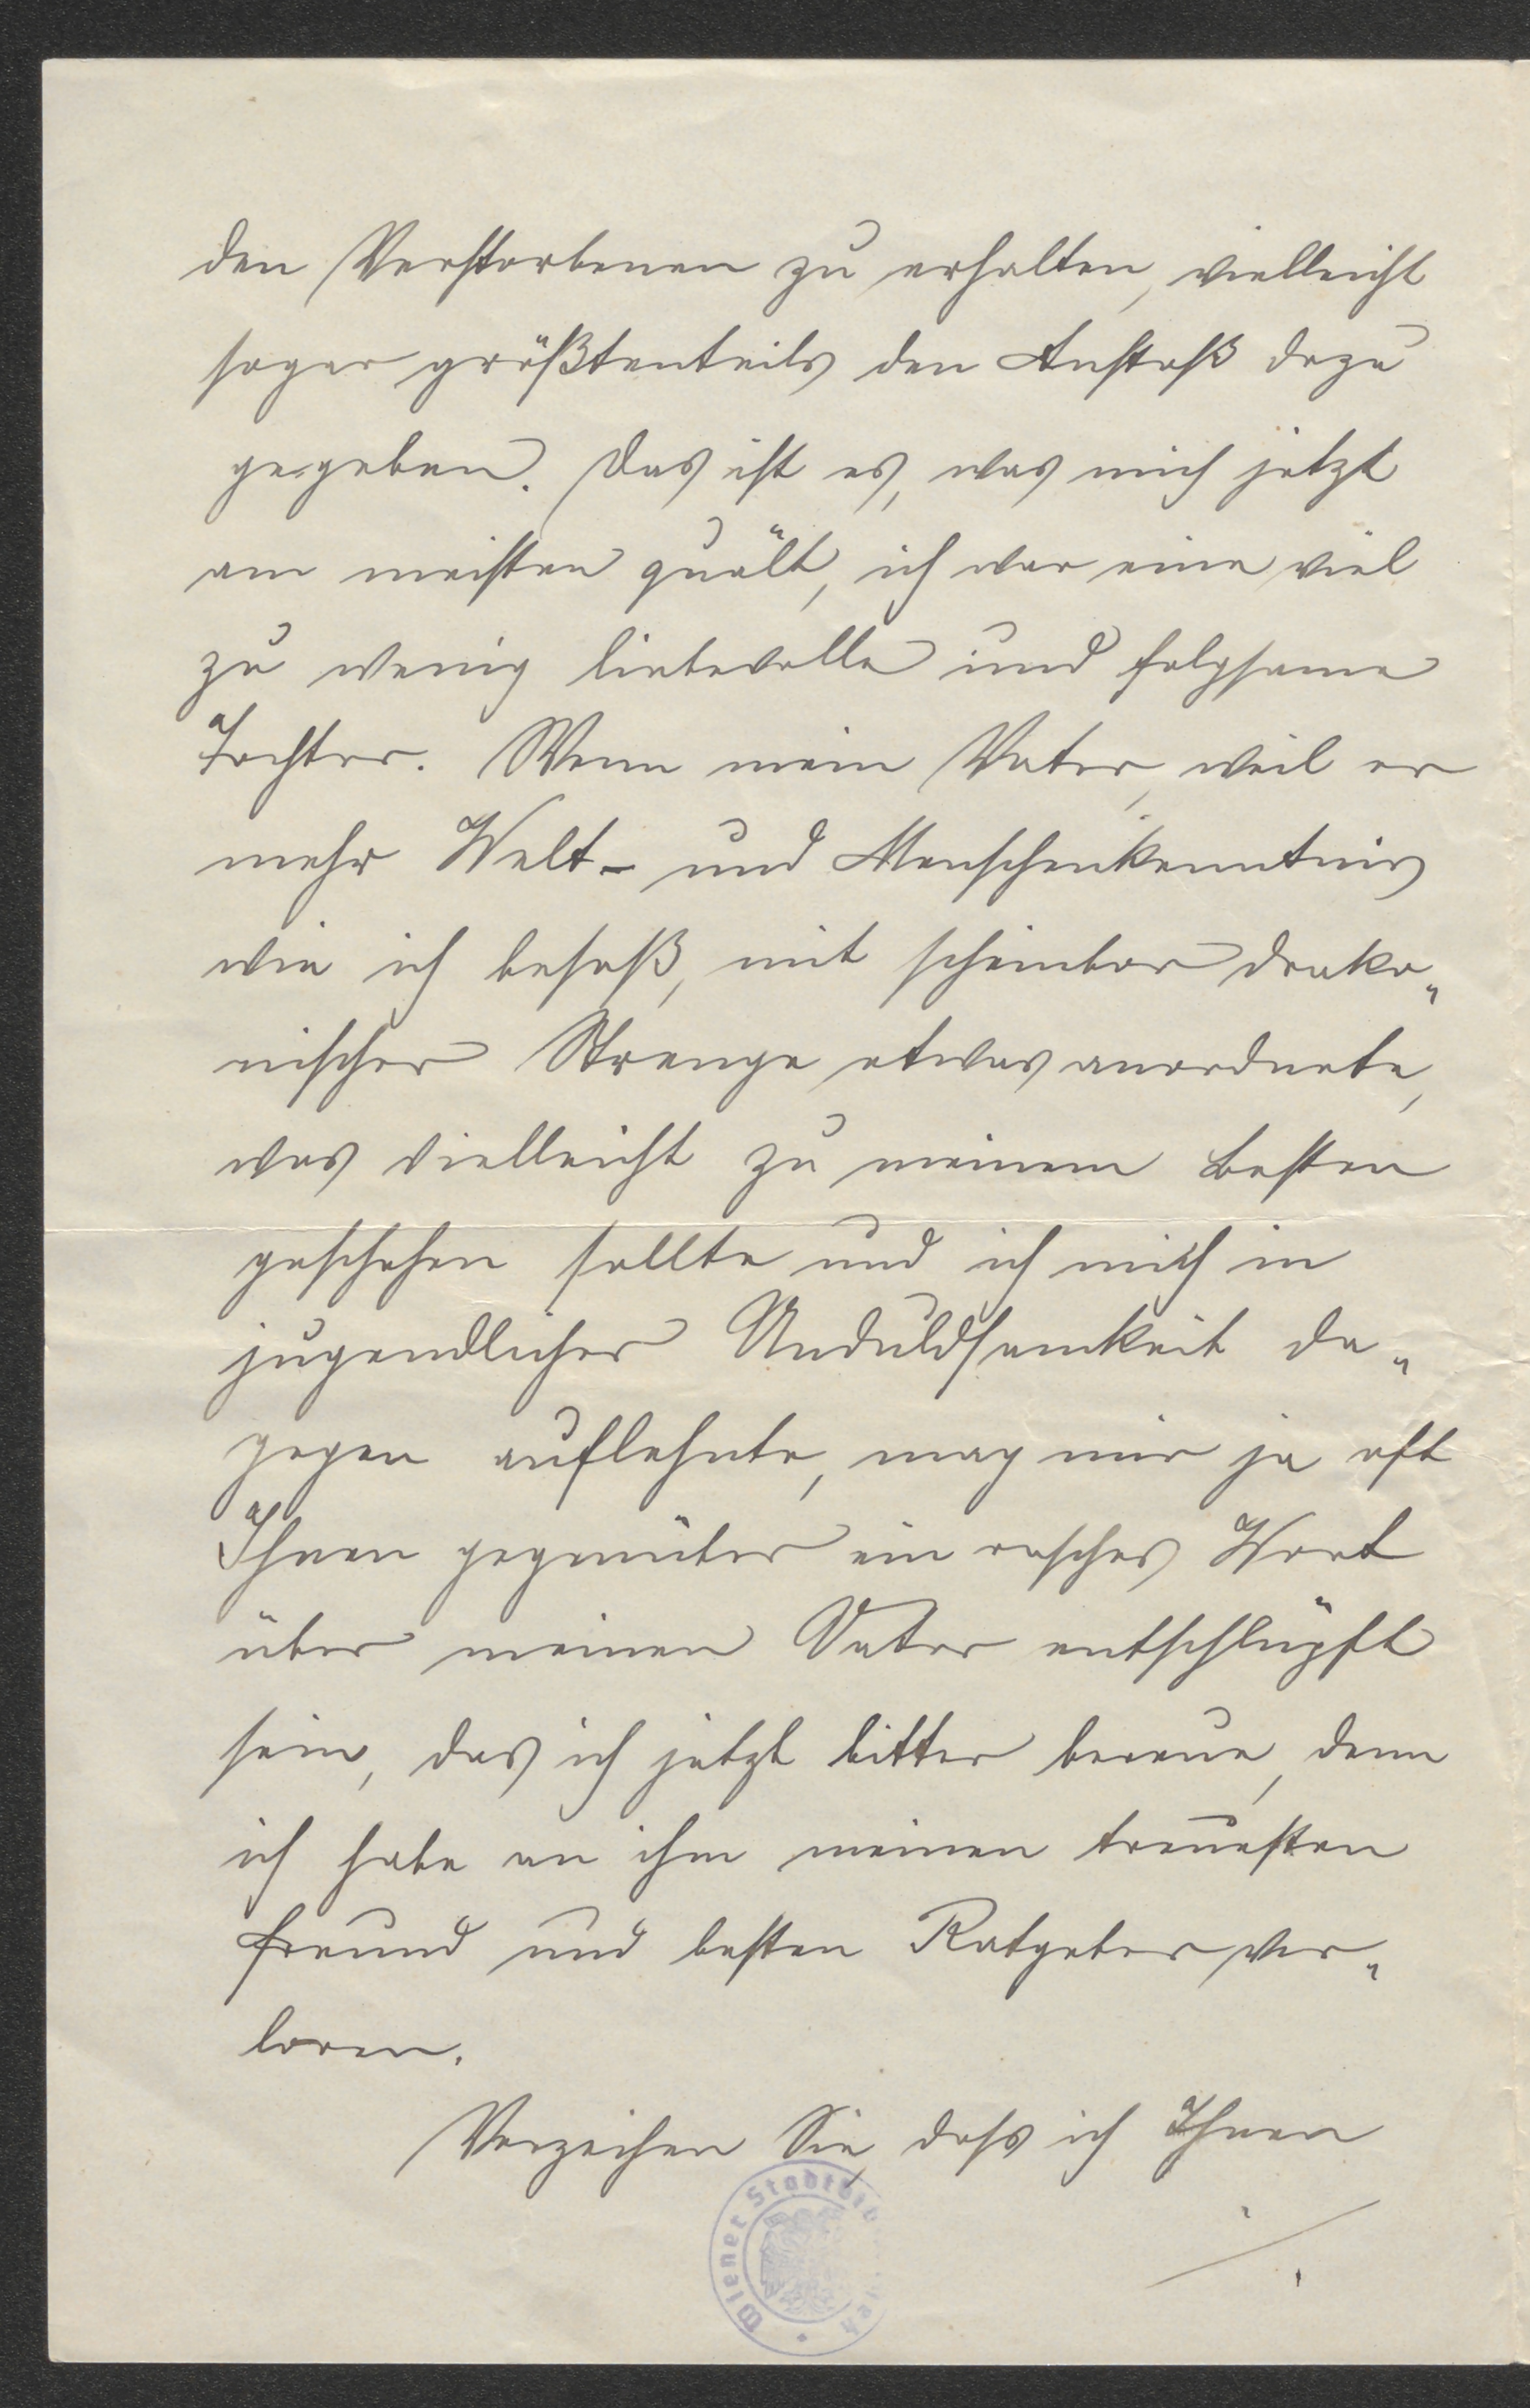 den Verstorbenen zu erhalten, vielleicht
sogar größtenteils den Anstoß dazu
gegeben. Das ist es, was mich jetzt
am meisten quält, ich war eine viel
zu wenig liebevolle und folgsame
Tochter. Wenn mein Vater, weil er
mehr Welt- und Menschenkenntnis
wie ich besaß, mit scheinbar drako„
nischer Strenge etwas anordnete,
was vielleicht zu meinem Besten
geschehen sollte und ich mich in
jugendlicher Unduldsamkeit da„
gegen auflehnte, mag mir ja oft
Ihnen gegenüber ein rasches Wort
über meinen Vater entschlüpft
sein, das ich jetzt bitter bereue, denn
ich habe an ihm meinen treuesten
Freund und besten Ratgeber ver„
loren.
Verzeihen Sie, dass ich Ihnen
./.
Wiener